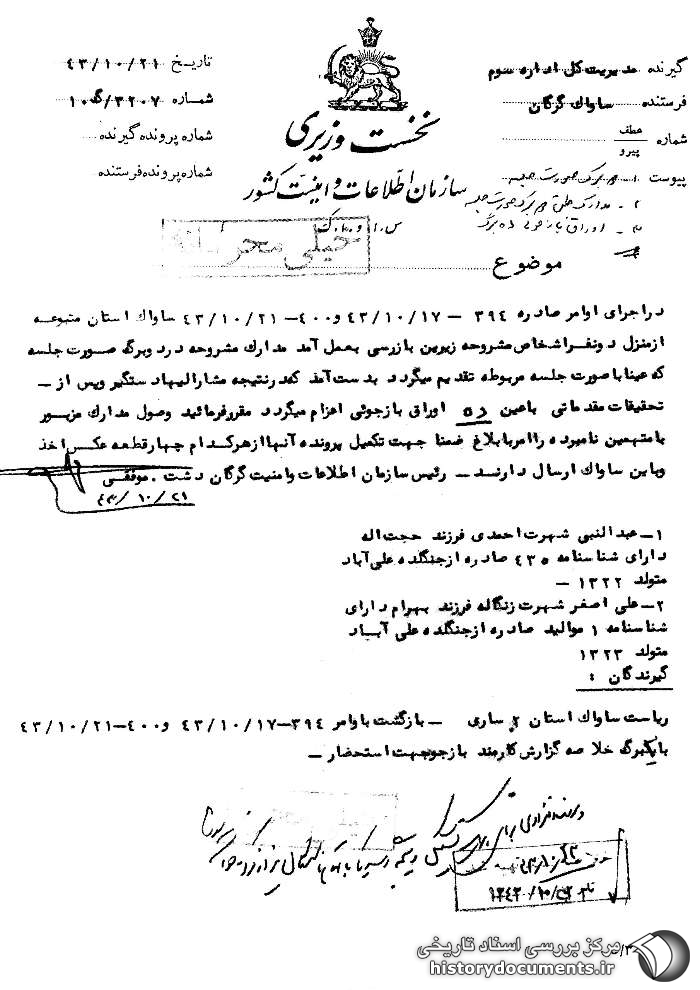 گیرنده مدیریت کل اداره سوم
فرستنده ساواک گرگان
شماره عطف
پیرو
پیوست
تاریخ ۴۳/۱۰/۲۱
شماره ۳۲۰۷/گ۱۰
شماره پرونده گیرنده
شماره پرونده فرستنده
نخست وزیری
سازمان اطلاعات و امنیت کشور
س.ا.و.ا.ک
خیلی محرمانه
موضوع
دراجرای اوامر صادره ۳۹۴ – ۴۳/۱۰/۱۷ و ۴۰۰– ۴۳/۱۰/۲۱ ساواک استان متبوعه
ازمنزل دونفراشخاص مشروحه زیرین بازرسی بعمل آمد مدارک مشروحه دردوبرگ صورت جلسه
که عیناباصورت جلسه مربوطه تقدیم میگردد بدست آمد کهدرنتیجه مشارالیهادستگیر وپس از –
تحقیقات مقدماتی باعین ده اوراق بازجوئی اعزام میگردد مقررفرمائید وصول مدارک مزبور
بامتهمین نامبرده راامربابلاغ ضمنا جهت تکمیل پرونده آنهاازهرکدام چهارقطعه عکس اخذ
وباین ساواک ارسال دارند – رئیس سازمان اطلاعات وامنیت گرگان ودشت . موفقی
۴۳/۱۰/۲۱
۱–عبدالنبی شهرت احمدی فرزند حجت اله
دارای شناسنامه ۴۳۵ صادره ازجنگلده علی آباد
متولد ۱۳۲۲ –
۲–علی اصغر شهرت زنگاله فرزند بهرام دارای
شناسنامه ۱ موالید صادره ازجنگلده علی آباد
متولد ۱۳۲۳
گیرندگان :
ریاست ساواک استان ۲ ساری – بازگشت باوامر ۳۹۴–۴۳/۱۰/۱۷ و۴۰۰–۴۳/۱۰/۲۱
بایکبرگ خلاصه گزارش کارمند بازجوجهت استحضار –
مرکز بررسی اسناد تاریخی
historydocuments.ir